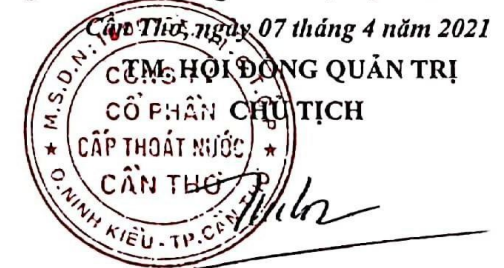 Cần Thơ, ngày 07 tháng 4 năm 2021
TM. HỘI ĐỒNG QUẢN TRỊ
CHỦ TỊCH
M.S.D.N:
CÔNG TY
CỔ PHẦN
CẤP THOÁT NƯỚC
CẦN THƠ
Q.NINH KIỀU - TP.CẦN THƠ